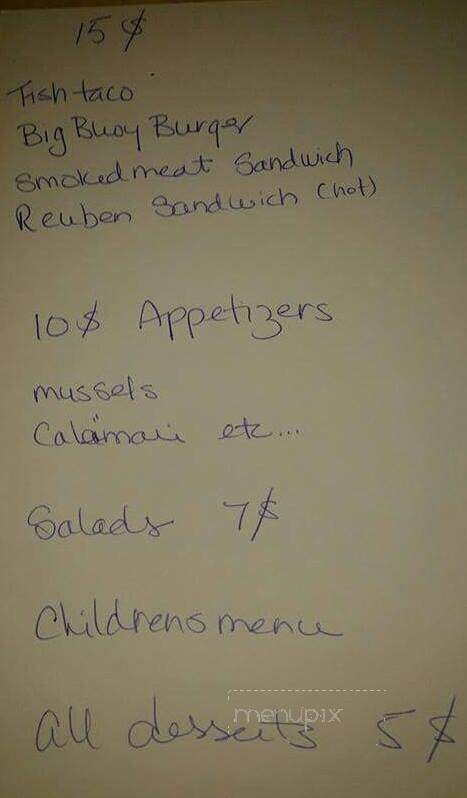 15 $
Fish taco
Big Buoy Burger
Smoked meat Sandwich
Reuben Sandwich (hot)
10$ Appetizers
mussels
Calamari etc...
Salads 7$
Childrens menu
menupix
All desserts 5$